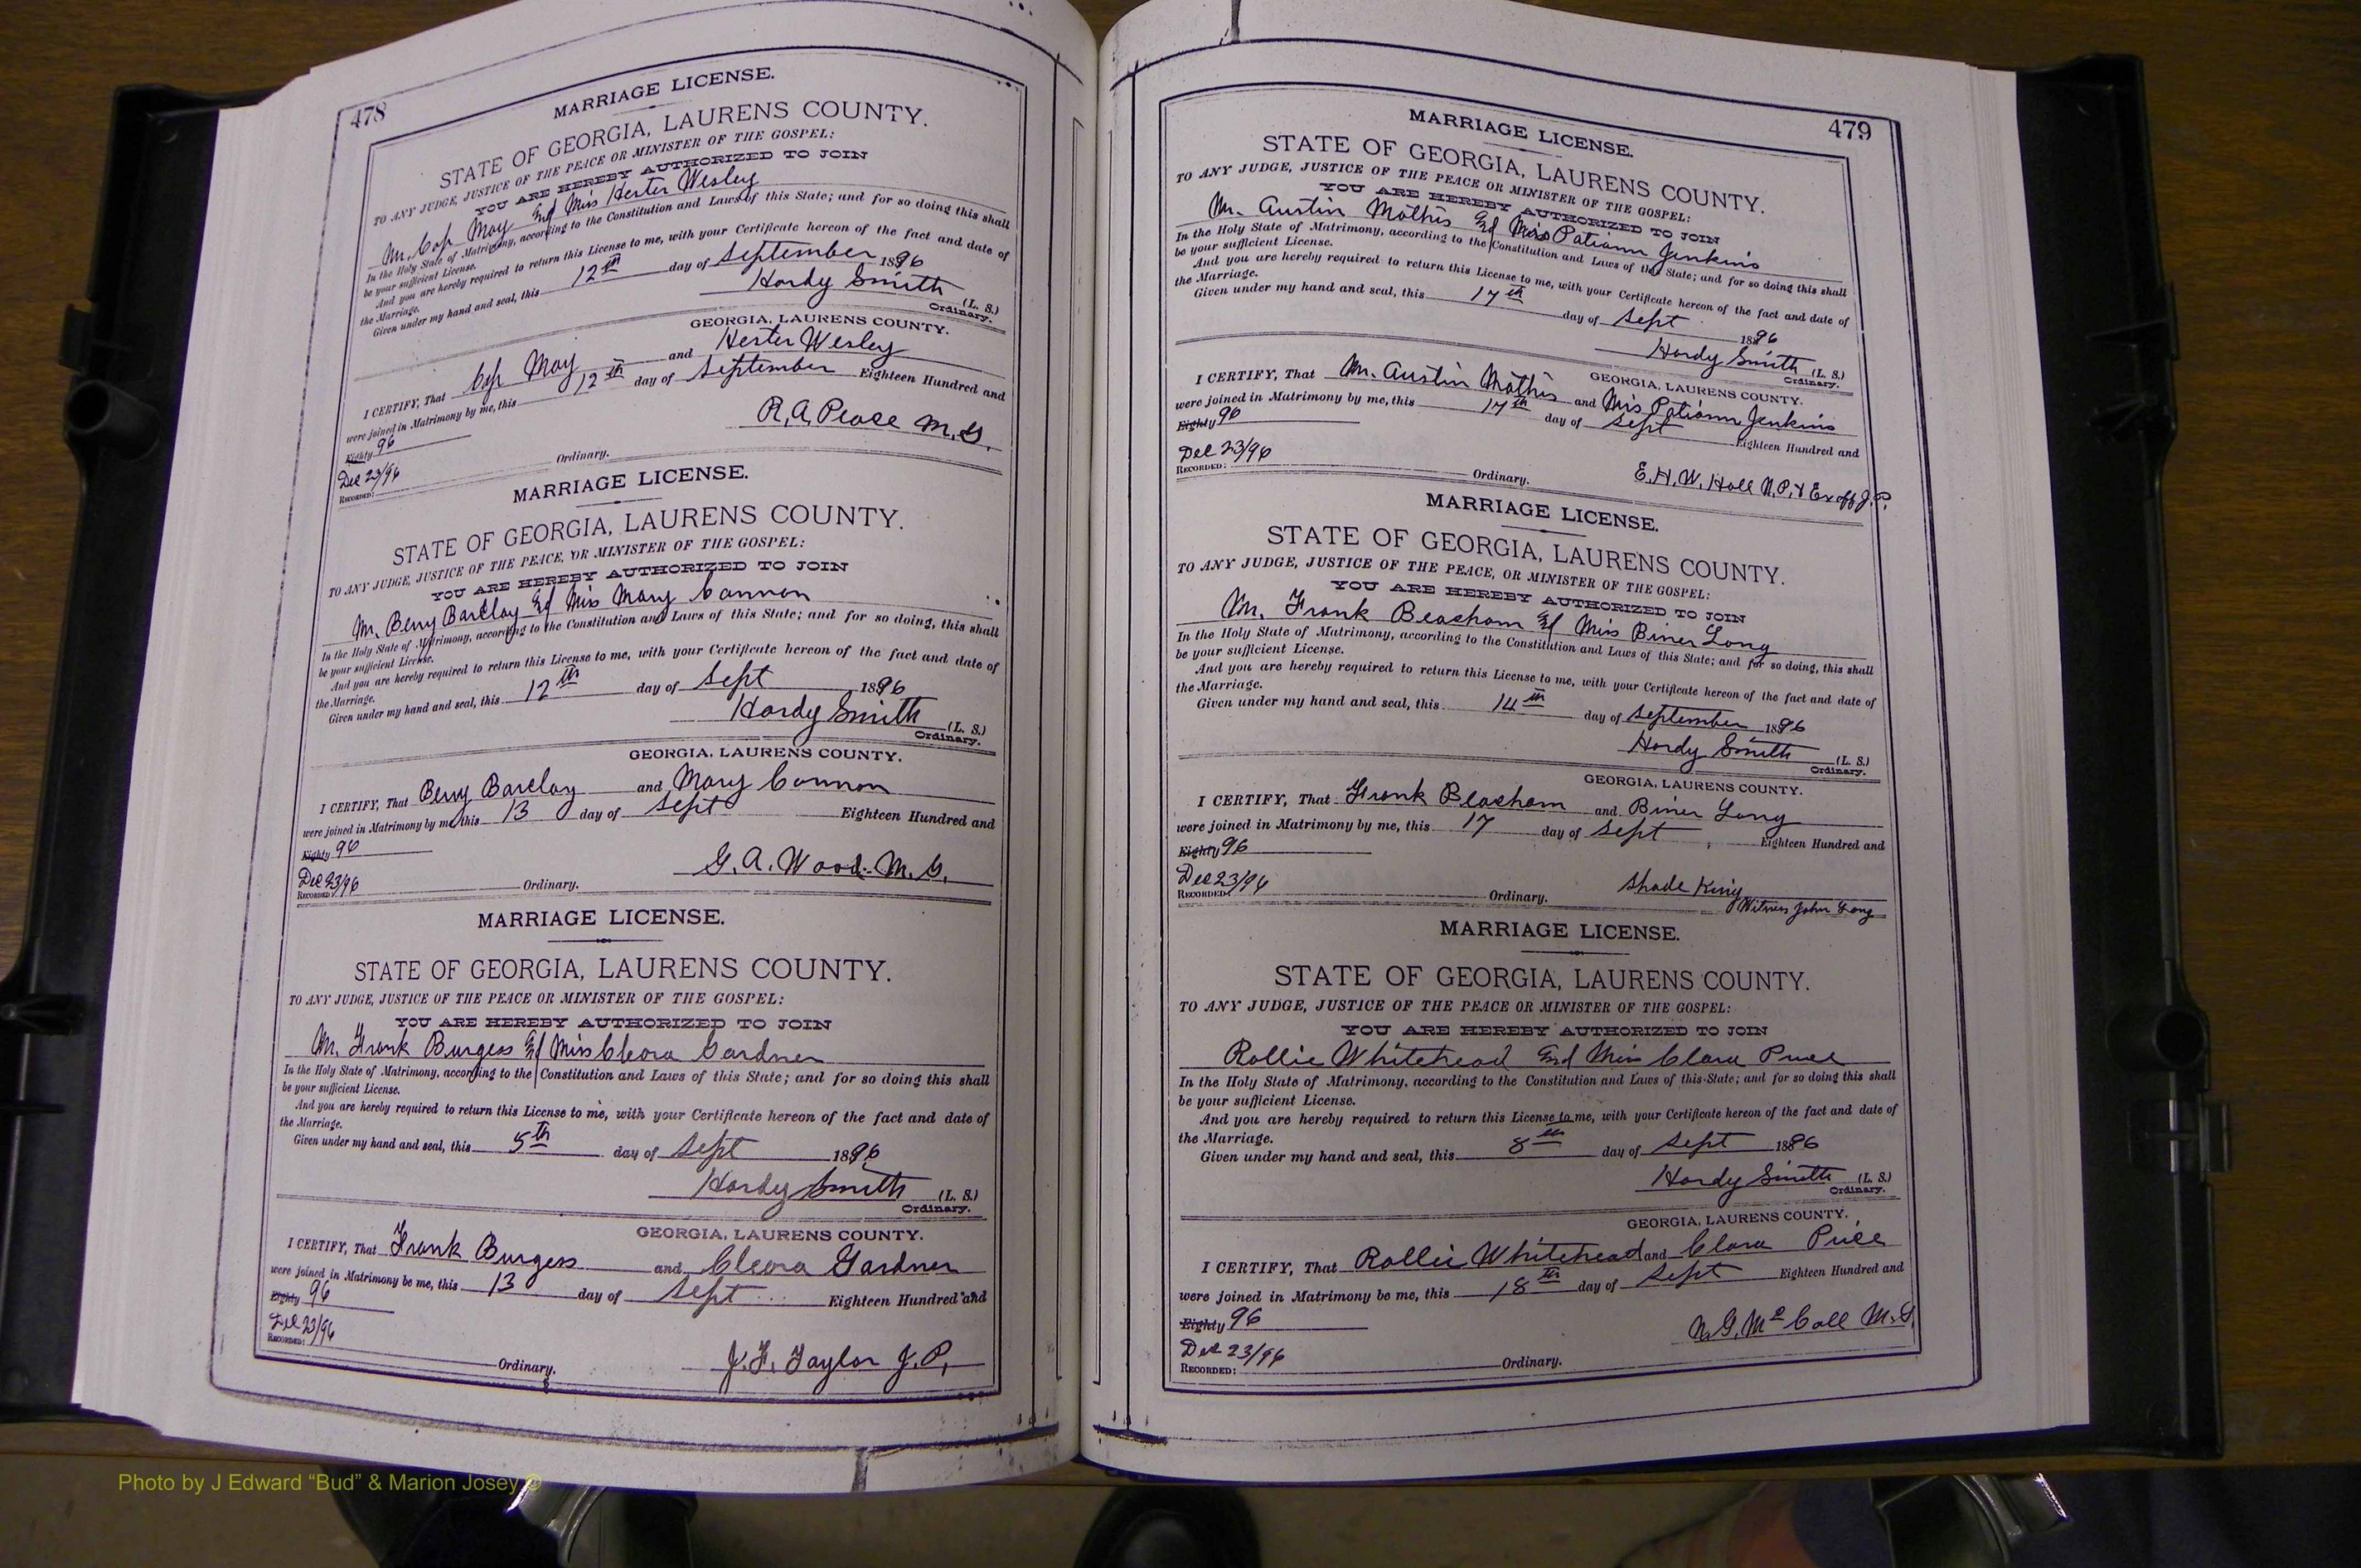 478
MARRIAGE LICENSE.
STATE OF GEORGIA, LAURENS COUNTY.
TO ANY JUDGE, JUSTICE OF THE PEACE OR MINISTER OF THE GOSPEL:
YOU ARE HEREBY AUTHORIZED TO JOIN
Mr. Cap May and Miss Hester Wesley
In the Holy State of Matrimony, according to the Constitution and Laws of this State; and for so doing this shall
be your sufficient License.
And you are hereby required to return this License to me, with your Certificate hereon of the fact and date of
the Marriage.
Given under my hand and seal, this 12th day of September 1896
Hardy Smith (L. S.)
Ordinary.
GEORGIA, LAURENS COUNTY.
I CERTIFY, That Cap May and Hester Wesley
were joined in Matrimony by me, this 12th day of September Eighteen Hundred and
Eighty 96
R. A. Pease M. G.
Dec 23/96
RECORDED: Ordinary.
MARRIAGE LICENSE.
STATE OF GEORGIA, LAURENS COUNTY.
TO ANY JUDGE, JUSTICE OF THE PEACE, OR MINISTER OF THE GOSPEL:
YOU ARE HEREBY AUTHORIZED TO JOIN
Mr. Berry Barclay and Miss Mary Cannon
In the Holy State of Matrimony, according to the Constitution and Laws of this State; and for so doing, this shall
be your sufficient License.
And you are hereby required to return this License to me, with your Certificate hereon of the fact and date of
the Marriage.
Given under my hand and seal, this 12th day of Sept 1896
Hardy Smith (L. S.)
Ordinary.
GEORGIA, LAURENS COUNTY.
I CERTIFY, That Berry Barclay and Mary Cannon
were joined in Matrimony by me, this 13 day of Sept Eighteen Hundred and
Eighty 96
G. A. Wood. M. G.
Dec 23/96
RECORDED: Ordinary.
MARRIAGE LICENSE.
STATE OF GEORGIA, LAURENS COUNTY.
TO ANY JUDGE, JUSTICE OF THE PEACE OR MINISTER OF THE GOSPEL:
YOU ARE HEREBY AUTHORIZED TO JOIN
Mr. Frank Burgess and Miss Cleora Gardner
In the Holy State of Matrimony, according to the Constitution and Laws of this State; and for so doing this shall
be your sufficient License.
And you are hereby required to return this License to me, with your Certificate hereon of the fact and date of
the Marriage.
Given under my hand and seal, this 5th day of Sept 1896
Hardy Smith (L. S.)
Ordinary.
GEORGIA, LAURENS COUNTY.
I CERTIFY, That Frank Burgess and Cleora Gardner
were joined in Matrimony be me, this 13 day of Sept Eighteen Hundred and
Eighty 96
Dec 23/96
RECORDED: Ordinary. J. F. Taylor J. P.
479
MARRIAGE LICENSE.
STATE OF GEORGIA, LAURENS COUNTY.
TO ANY JUDGE, JUSTICE OF THE PEACE OR MINISTER OF THE GOSPEL:
YOU ARE HEREBY AUTHORIZED TO JOIN
Mr. Austin Mathis and Miss Patiann Jenkins
In the Holy State of Matrimony, according to the Constitution and Laws of this State; and for so doing this shall
be your sufficient License.
And you are hereby required to return this License to me, with your Certificate hereon of the fact and date of
the Marriage.
Given under my hand and seal, this 17th day of Sept 1896
Hardy Smith (L. S.)
Ordinary.
GEORGIA, LAURENS COUNTY.
I CERTIFY, That Mr. Austin Mathis and Miss Patiann Jenkins
were joined in Matrimony by me, this 17th day of Sept Eighteen Hundred and
Eighty 96
Dec 23/96
RECORDED: Ordinary. E. H. W. Hall N. P. & Ex off J. P.
MARRIAGE LICENSE.
STATE OF GEORGIA, LAURENS COUNTY.
TO ANY JUDGE, JUSTICE OF THE PEACE, OR MINISTER OF THE GOSPEL:
YOU ARE HEREBY AUTHORIZED TO JOIN
Mr. Frank Beasham and Miss Biner Long
In the Holy State of Matrimony, according to the Constitution and Laws of this State; and for so doing, this shall
be your sufficient License.
And you are hereby required to return this License to me, with your Certificate hereon of the fact and date of
the Marriage.
Given under my hand and seal, this 14th day of September 1896
Hardy Smith (L. S.)
Ordinary.
GEORGIA, LAURENS COUNTY.
I CERTIFY, That Frank Beasham and Biner Long
were joined in Matrimony by me, this 17 day of Sept Eighteen Hundred and
Eighty 96
Dec 23/96 Shade King
RECORDED: Ordinary. Witness John Long
MARRIAGE LICENSE.
STATE OF GEORGIA, LAURENS COUNTY.
TO ANY JUDGE, JUSTICE OF THE PEACE OR MINISTER OF THE GOSPEL:
YOU ARE HEREBY AUTHORIZED TO JOIN
Rollie Whitehead and Miss Clara Price
In the Holy State of Matrimony, according to the Constitution and Laws of this State; and for so doing this shall
be your sufficient License.
And you are hereby required to return this License to me, with your Certificate hereon of the fact and date of
the Marriage.
Given under my hand and seal, this 8th day of Sept 1896
Hardy Smith (L. S.)
Ordinary.
GEORGIA, LAURENS COUNTY.
I CERTIFY, That Rollie Whitehead and Clara Price
were joined in Matrimony be me, this 18th day of Sept Eighteen Hundred and
Eighty 96
N. G. McCall M. G.
Dec 23/96
RECORDED: Ordinary.
Photo by J Edward “Bud” & Marion Josey ©